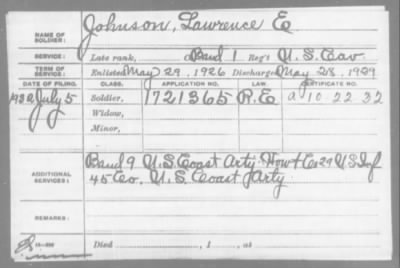 NAME OF SOLDIER: Johnson, Lawrence E
SERVICE: Late rank, Band 1 Reg't U.S. Cav.
TERM OF SERVICE: Enlisted May 29, 1926 Discharged May 28, 1929
DATE OF FILING. CLASS. APPLICATION NO. LAW. CERTIFICATE NO.
1932 July 5 Soldier, 1721365 R.E a 10 22 32
Widow,
Minor,
ADDITIONAL SERVICES: Band 9 U.S. Coast Arty. How't Co 29 U.S Inf
45 Co, U.S. Coast Arty
REMARKS:
Died , 1 , at